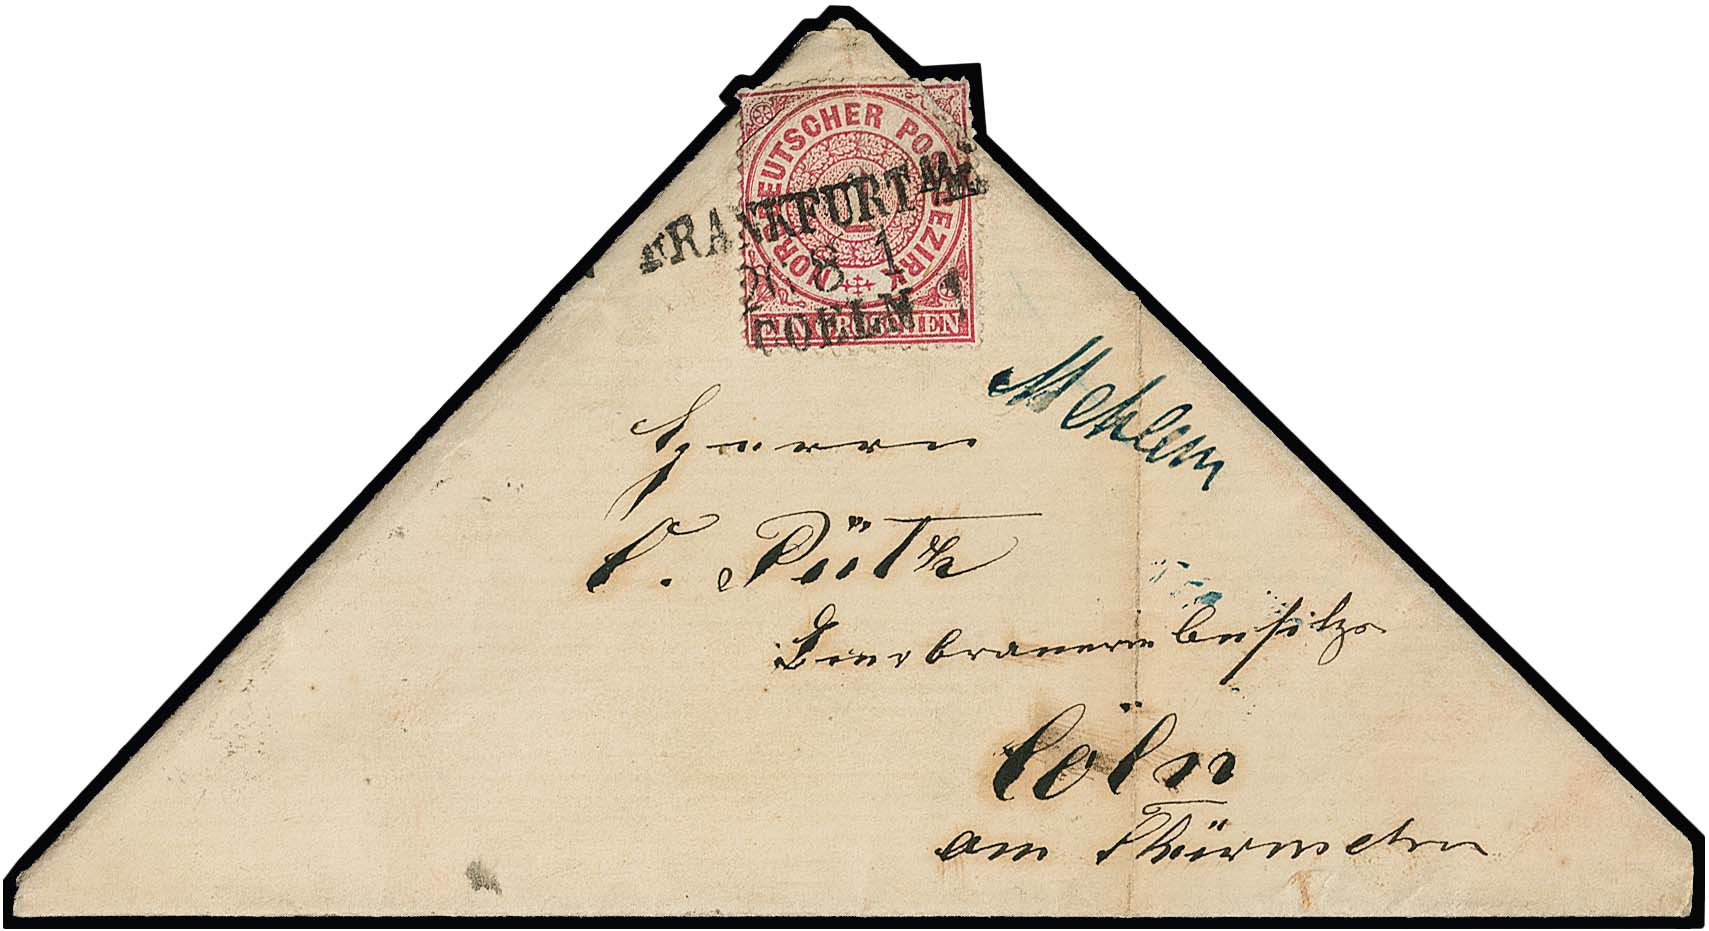 NORDDEUTSCHER POSTBEZIRK
1
EIN GROSCHEN
FRANKFURT A/M
8 1
COELN
Mehlem
Herrn
P. Püth
Bierbrauereibesitzer
Cöln
am Thürmchen